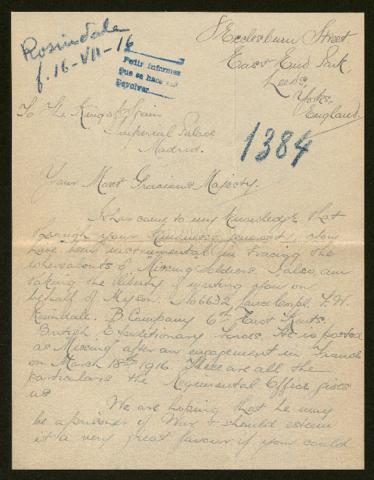 Rosindale
f. 16-VII-16
Pedir informes
Que se hace
Devolver
8 Ecclesburn Street
East End Park
Leeds,
Yorks,
England
To The King of Spain
Imperial Palace
Madrid.
1384
Your Most Gracious Majesty.
It has come to my knowledge that
through your generosity, you
have been instrumental in tracing the
whereabouts of Missing Soldiers. I also, am
taking the liberty of writing you on
behalf of My son. No 6632 Lance Corpl. F. W.
Rosindale. B Company 6th East Kents.
British Expeditionary Forces. He is posted
as Missing after an engagement in France
on March 18th 1916. These are all the
particulars the Regimental Office gives
us
We are hoping that he may
be a prisoner of War & should esteem
it a very great favour if you could